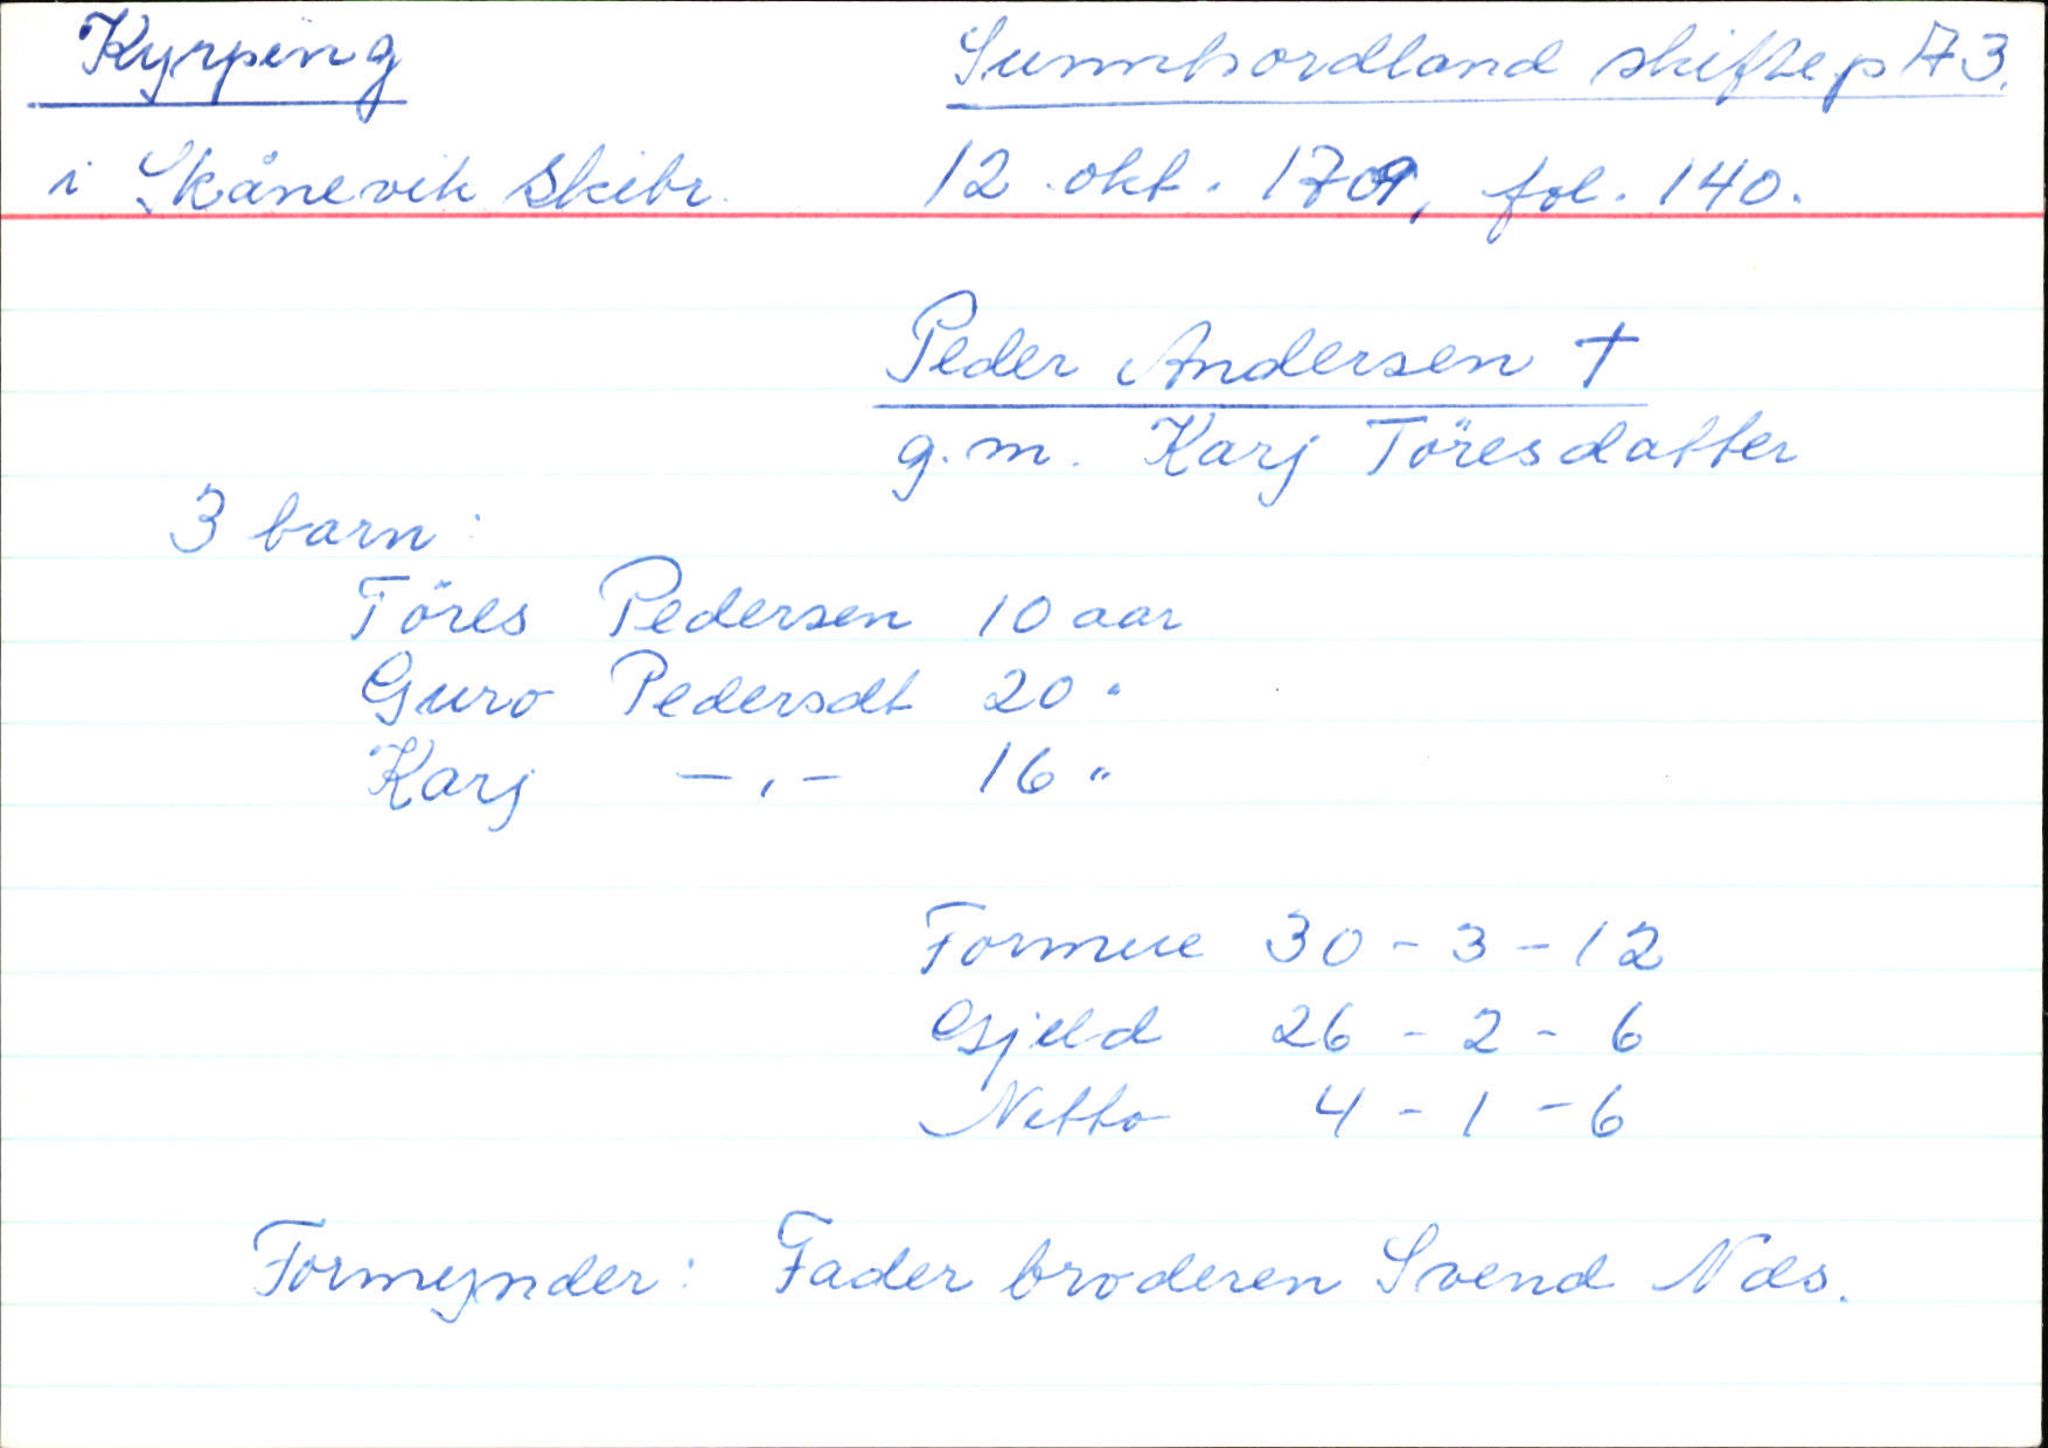 Kyrping
Sunnhordland skiftep A 3.
i Skånevik Skibr.
12. okt. 1709, fol. 140.
Peder Andersen †
g. m. Karj Töresdatter
3 barn:
Töres Pedersen 10 aar
Guro Pedersdt 20 "
Karj -,- 16 "
Formue 30 - 3 - 12
Gjeld 26 - 2 - 6
Netto 4 - 1 - 6
Formynder: Fader broderen Svend Næs.